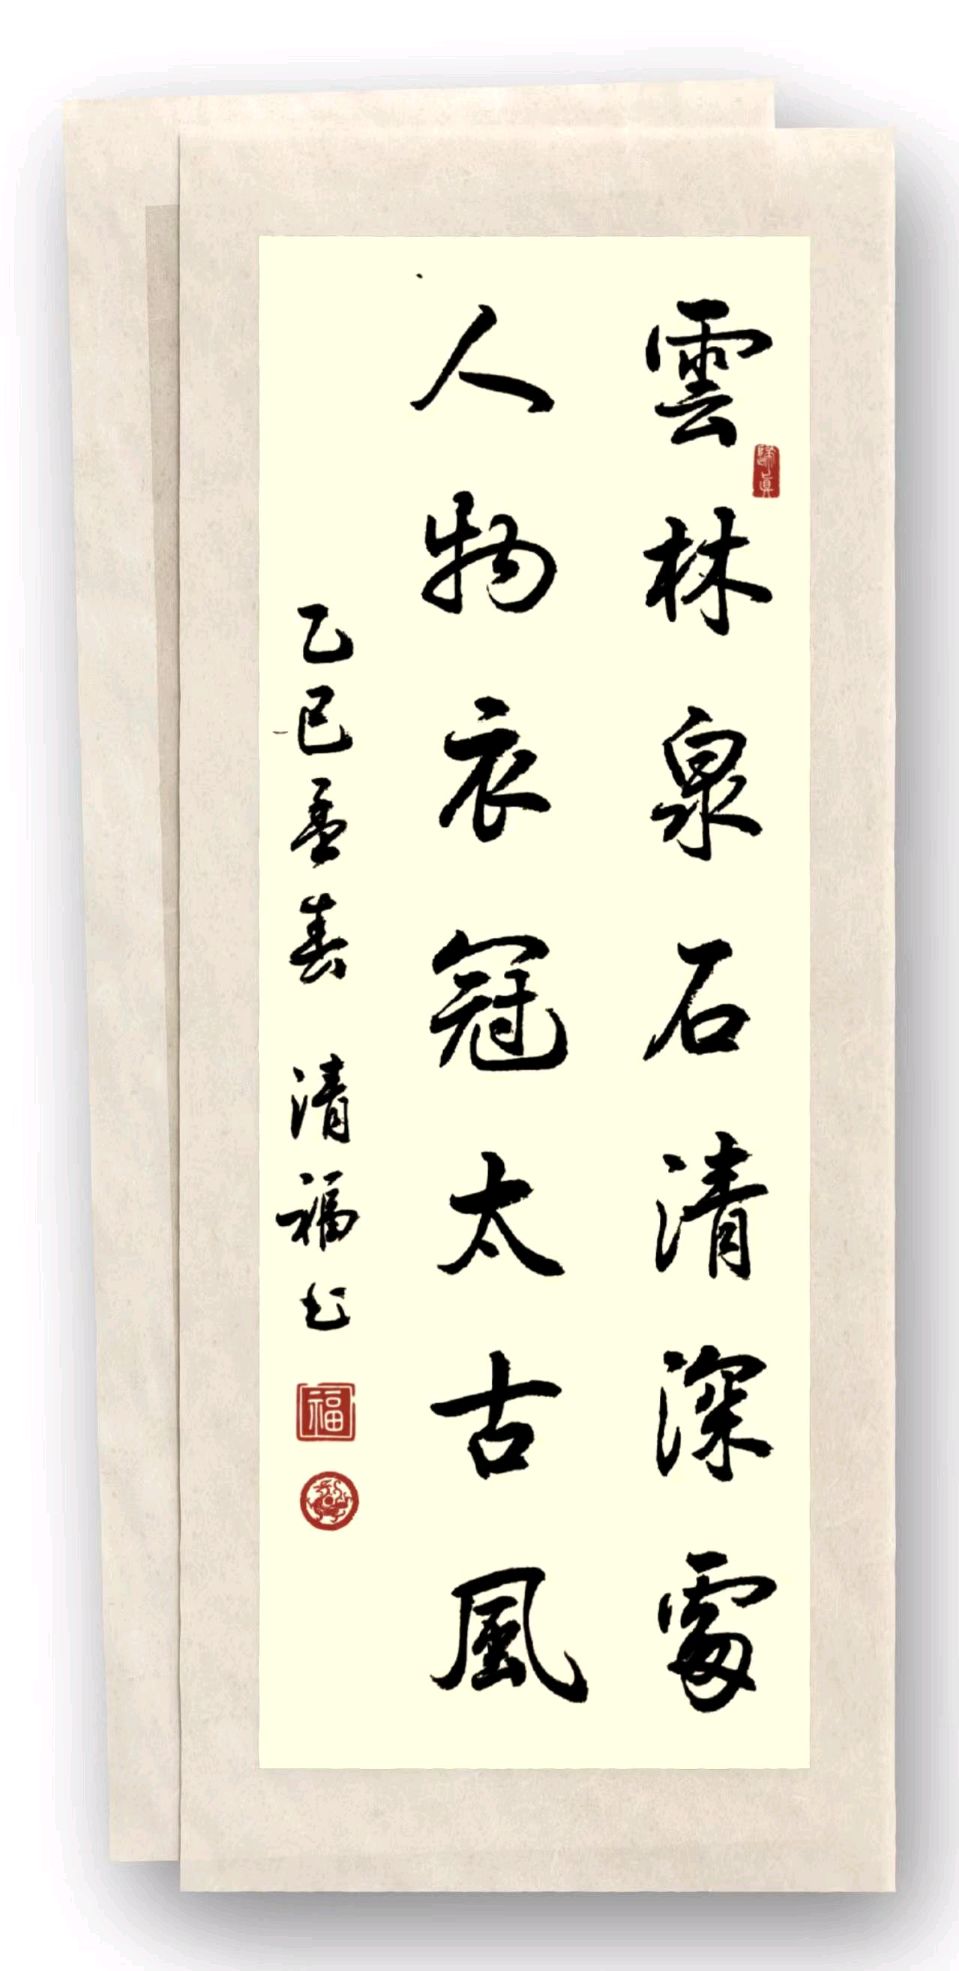 雲林泉石清深處
人物衣冠太古風
乙巳孟春 清福书
福